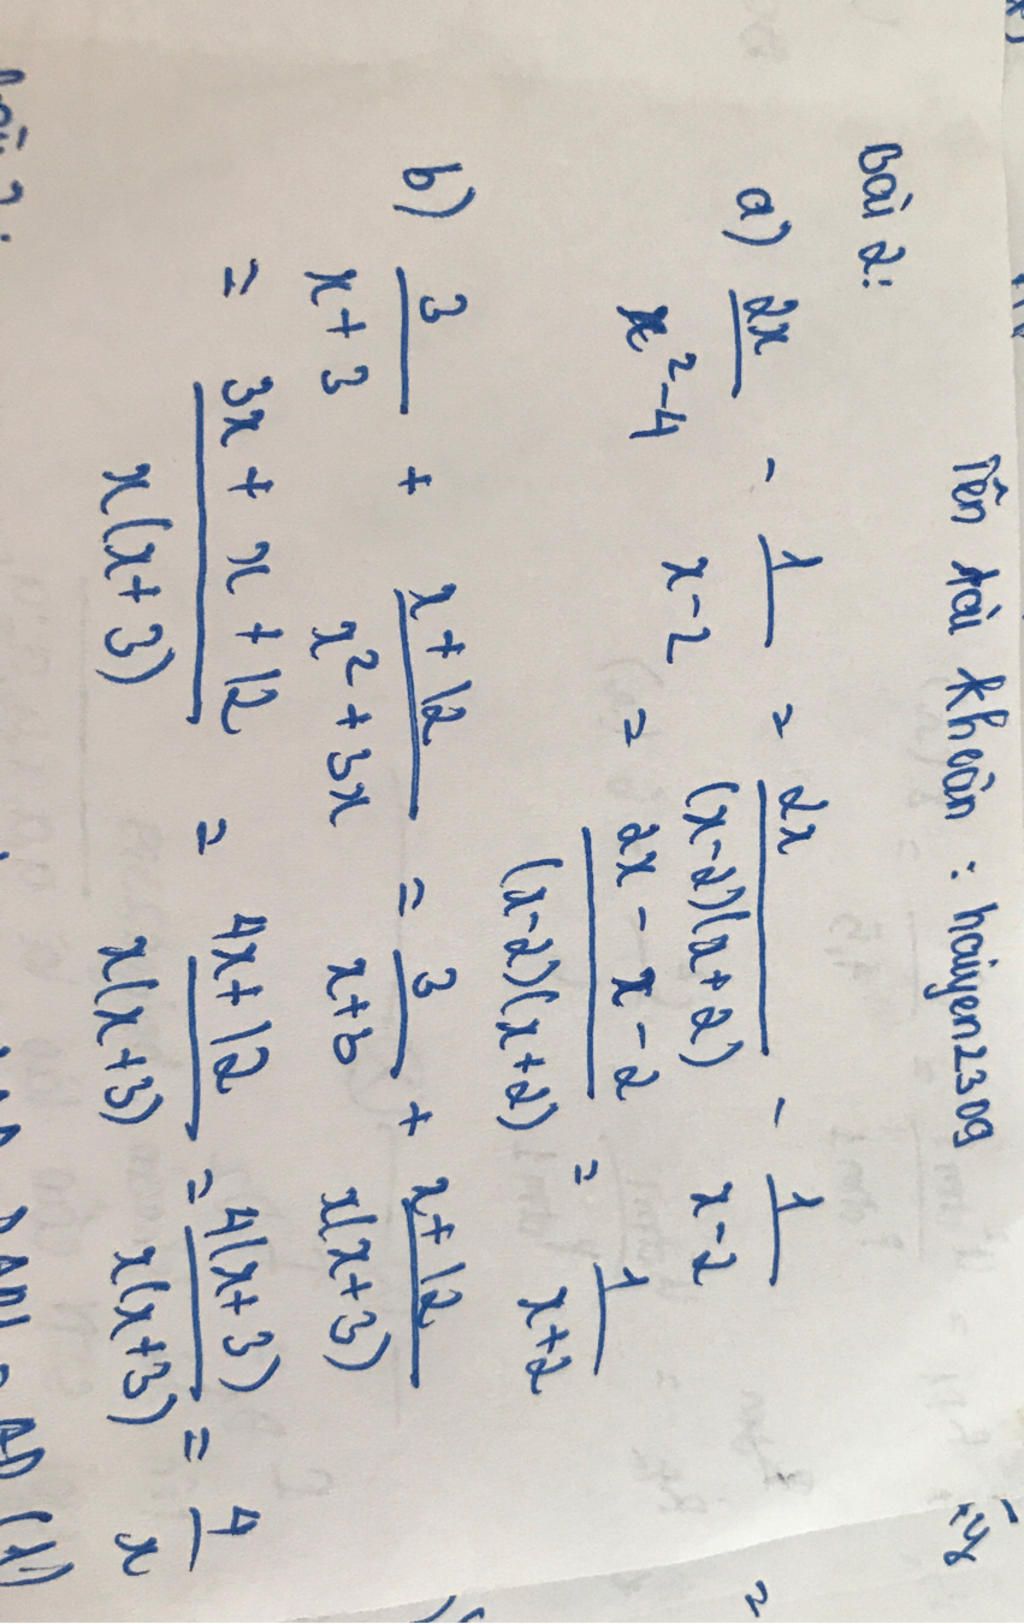 Tên tài khoản : haiyen2309
Bài 2:
a) 2x/(x² - 4) - 1/(x - 2) = 2x/((x - 2)(x + 2)) - 1/(x - 2)
= (2x - x - 2)/((x - 2)(x + 2)) = 1/(x + 2)
b) 3/(x + 3) + (x + 12)/(x² + 3x) = 3/(x + 3) + (x + 12)/(x(x + 3))
= (3x + x + 12)/(x(x + 3)) = (4x + 12)/(x(x + 3)) = 4(x + 3)/(x(x + 3)) = 4/x